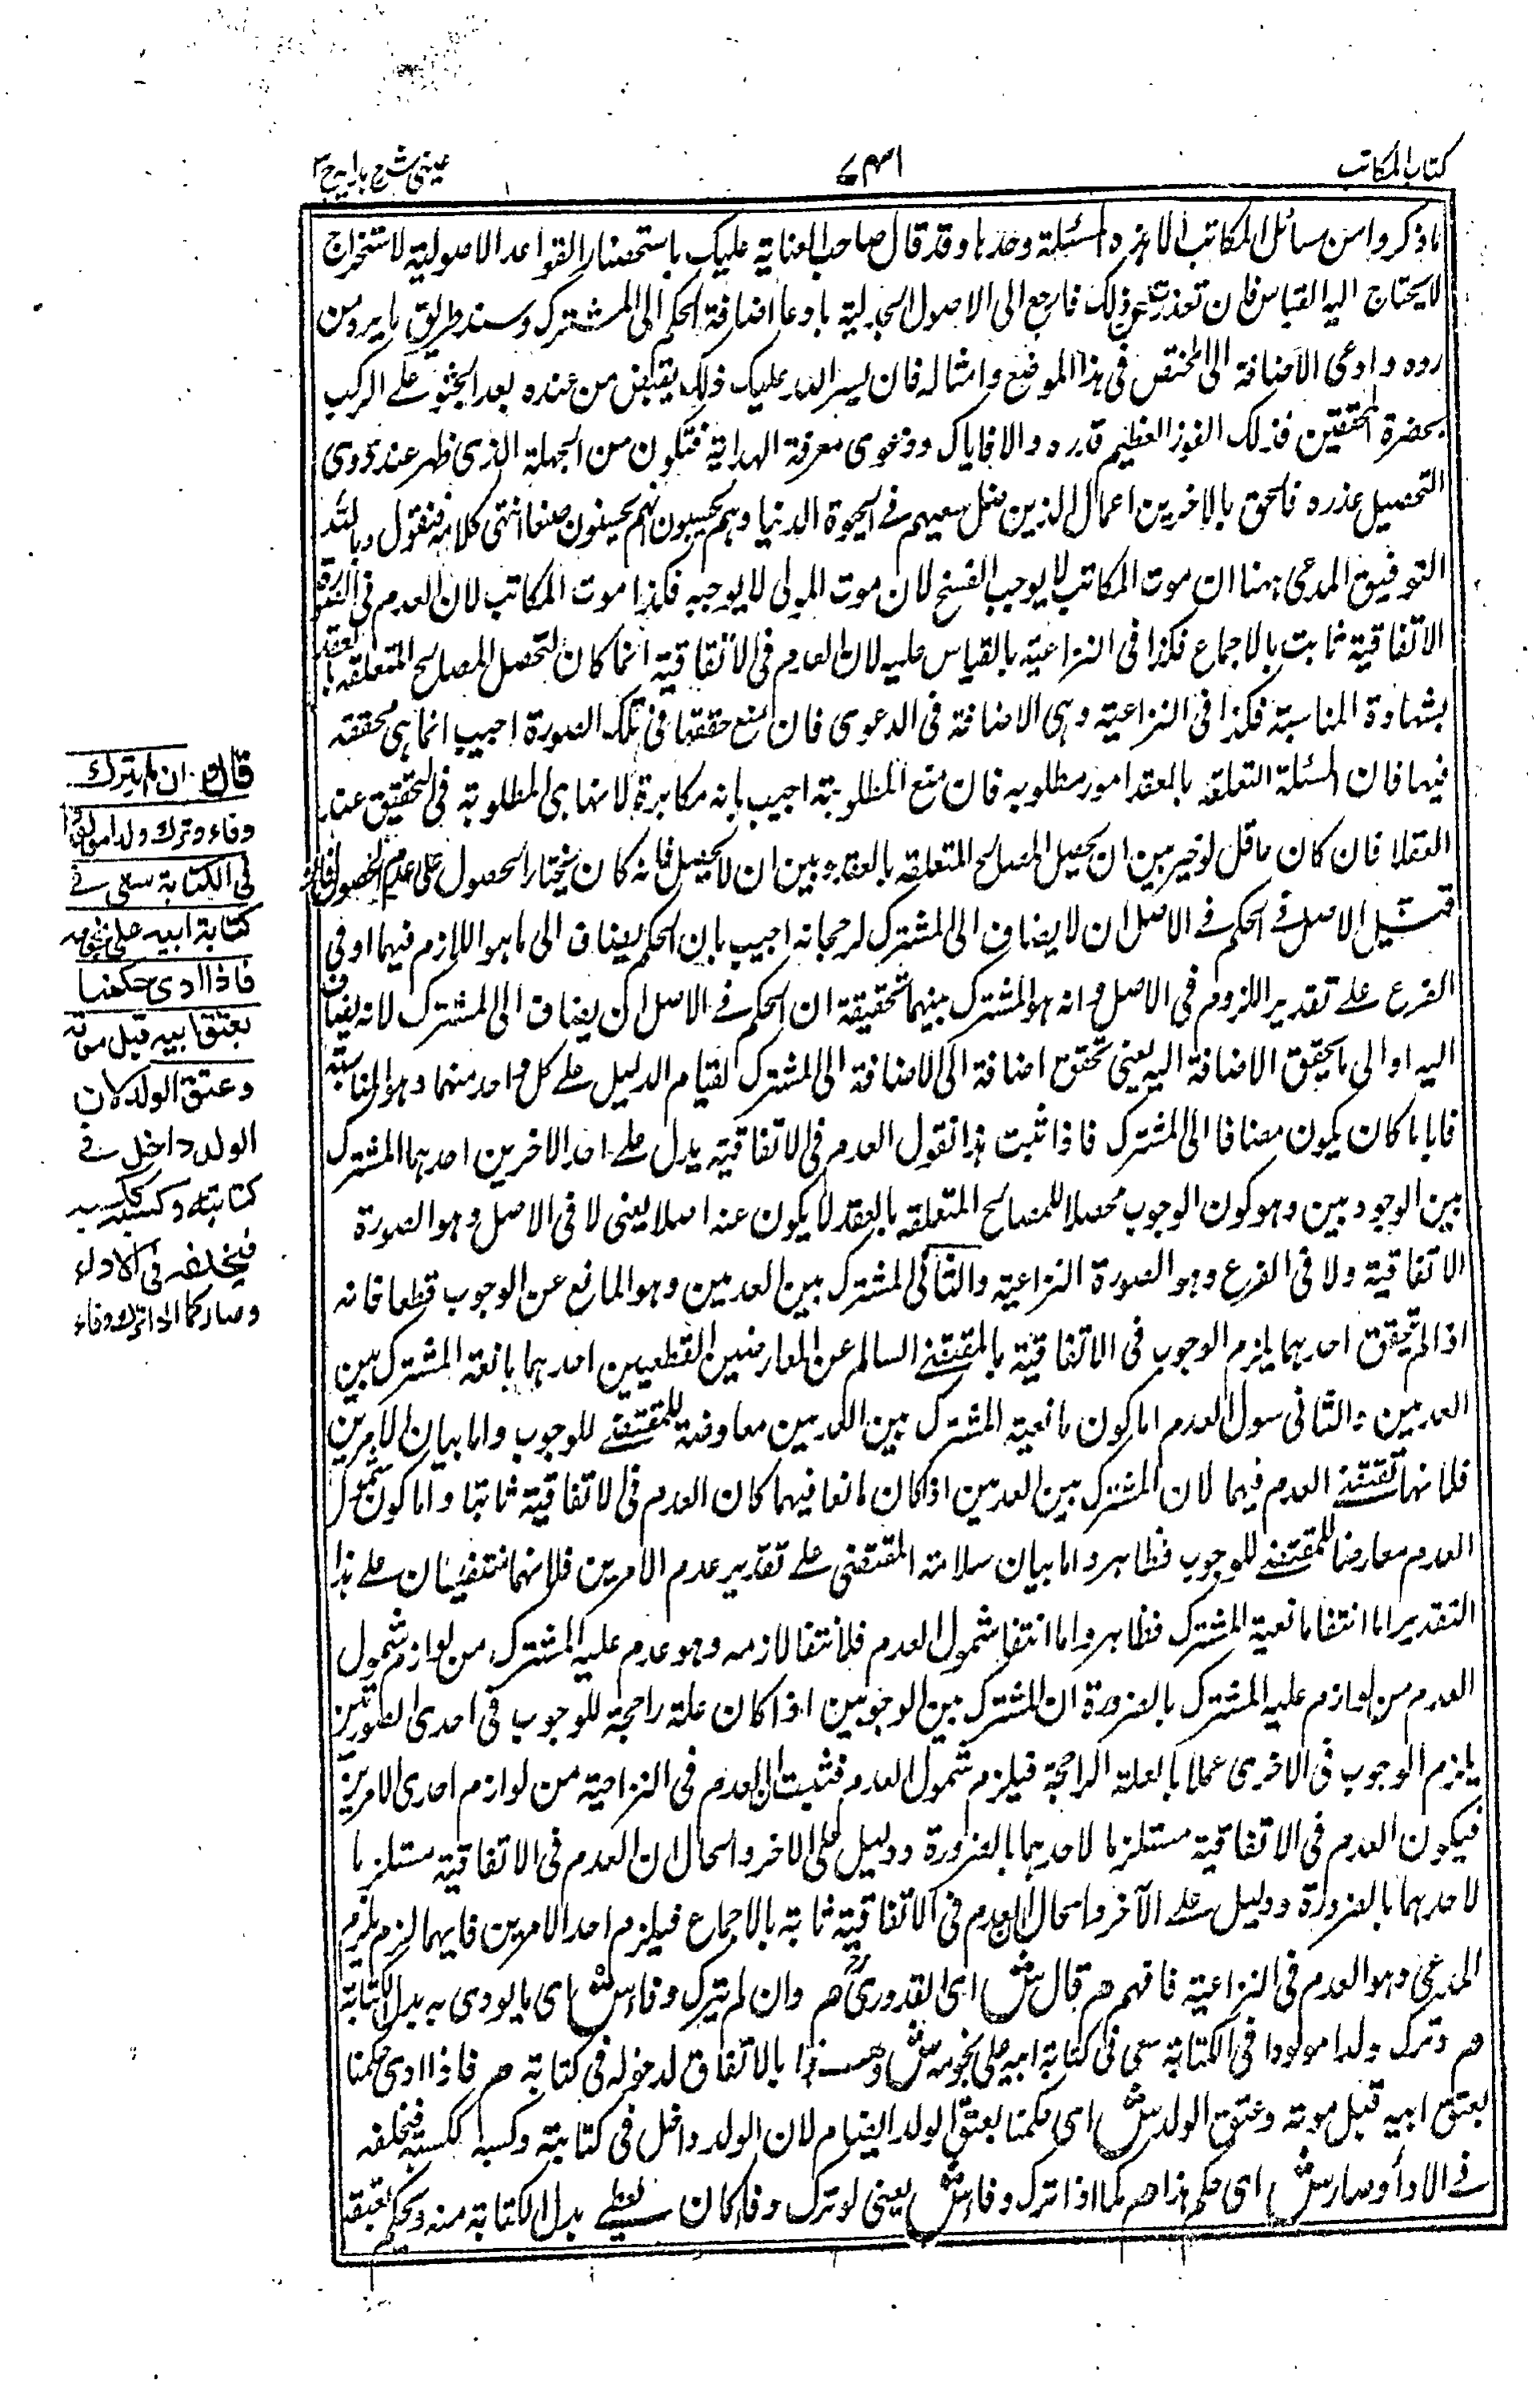 كتاب المكاتب
٧٣١
عينى شرح هدايه ج ٣
ما ذكروا من مسائل المكاتب الا هذه المسئلة وحدها وقد قال صاحب العناية عليك باستحضار القواعد الاصولية لاستخراج
لا يحتاج اليه القياس فان تعذر ذلك فارجع الى الاصول الجدلية با دعا اضافة الحكم الى المشترك وسند طريق ما يرومن
رده وادعى الاضافة الى المختص فى هذا الموضع وامثاله فان يسر الله عليك ذلك بفيض من عنده بعد الجثو على الركب
بحضرة المحققين فذلك الفوز العظيم قدره والا فاياك ودعوى معرفة الهداية فتكون من الجهلة الذى ظهر عند ذوى
التحصيل عذره فالحق بالاخرين اعمال الذين ضل سعيهم فى الحيوة الدنيا وهم يحسبون انهم يحسنون صنعا انتهى كلامه فنقول وبالله
التوفيق المدعى ههنا ان موت المكاتب لا يوجب الفسخ لان موت المولى لا يوجبه فكذا موت المكاتب لان العدم فى الصورة
الاتفاقية ثابت بالاجماع فكذا فى النزاعية بالقياس عليه لان العدم فى الاتفاقية انما كان لتحصل المصالح المتعلقة بالعقد
بشهادة المناسبة فكذا فى النزاعية وهى الاضافة فى الدعوى فان منع حققها فى تلك الصورة اجيب انما هى محققة
فيها فان المسئلة التعلقه بالعقد امور مطلوبه فان منع المطلوبية اجيب بانه مكابرة لانها هى المطلوبة فى التحقيق عند
العقلا فان كان عاقل لو خير بين ان يحصل المصالح المتعلقه بالعقد وبين ان لا يحصل فانه كان يختار الحصول على عدم الحصول فان
قيل الاصل فى الحكم فى الاصل ان لا يضاف الى المشترك لرجحانه اجيب بان الحكم يضاف الى ما هو اللازم فيهما او فى
الفرع على تقدير اللزوم فى الاصل وانه هو المشترك بينهما تحقيقة ان الحكم فى الاصل ان يضاف الى المشترك لانه يضاف
اليه او الى ما يحقق الاضافة اليه يعنى تحقق اضافة الى الاضافة الى المشترك لقيام الدليل على كل واحد منهما وهو المناسبة
فايا ما كان يكون مضافا الى المشترك فاذا ثبت هذا نقول العدم فى الاتفاقية يدل على احد الاخرين احدهما المشترك
بين الوجودبين وهو كون الوجوب محصلا للمصالح المتعلقه بالعقد لا يكون عنه اصلا يعنى لا فى الاصل وهو الصورة
الاتفاقية ولا فى الفرع وهو الصورة النزاعية والثانى المشترك بين العدمين وهو المانع عن الوجوب قطعا فانه
اذا لم يتحقق احدهما يلزم الوجوب فى الاتفاقية بالمقتضى السالم عن المعارضين القطعيين احدهما مانعة المشترك بين
العدمين والثانى شمول العدم اما كون مانعية المشترك بين العدمين معاوضة للمقتضى للوجوب واما بيان الامرين
فلانها تقتضى العدم فيهما لان المشترك بين العدمين اذا كان مانعا فيهما كان العدم فى الاتفاقية ثابتا واما كون شمول
العدم معارضا للمقتضى للوجوب فظاهر واما بيان سلامة المقتضى على تقدير عدم الامرين فلانهما منتفيان على هذا
التقدير اما انتفا مانعية المشترك فظاهر واما انتفا شمول العدم فلانتفا لازمه وهو عدم علية المشترك من لوازم شمول
العدم من لوازم علية المشترك بالضرورة ان المشترك بين الوجوبين اذا كان علة راجحة للوجوب فى احدى الصورتين
يلزم الوجوب فى الاخرى عملا بالعلة الراجحة فيلزم شمول العدم فثبت ان العدم فى النزاعية من لوازم احدى الامرين
فيكون العدم فى الاتفاقية مستلزما لاحدهما بالضرورة ودليل على الاخر والحال ان العدم فى الاتفاقية مستلزما
لاحدهما بالضرورة ودليل على الآخر والحال ان العدم فى الاتفاقية ثابتة بالاجماع فيلزم احد الامرين فايهما لزم يلزم
المدعى وهو العدم فى النزاعية فافهم هم قال ش اى القدورى هم وان لم يترك وفاء ش اى ما يودى به بدل الكتابة
هم وترك ولدا مولودا فى الكتابة سعى فى كتابة ابيه على نجومه ش وهذا بالاتفاق لدخوله فى كتابته هم فاذا ادى حكمنا
بعتق ابيه قبل موته وعتق الولد ش اى حكمنا بعتق الولد ايضا م لان الولد داخل فى كتابته وكسبه ككسبه فيخلفه
فى الاداء وصار ش اى حكم هذا هم كما اذا ترك وفاء ش يعنى لو ترك وفاء كان يعطى بدل الكتابة منه ويحكم بعتقه
قال وان لم يترك
وفاء وترك ولدا مولودا
فى الكتابة سعى فى
كتابة ابيه على نجومه
فاذا ادى حكمنا
بعتق ابيه قبل موته
وعتق الولد لان
الولد داخل فى
كتابته وكسبه ككسبه
فيخلفه فى الاداء
وصار كما اذا ترك وفاء